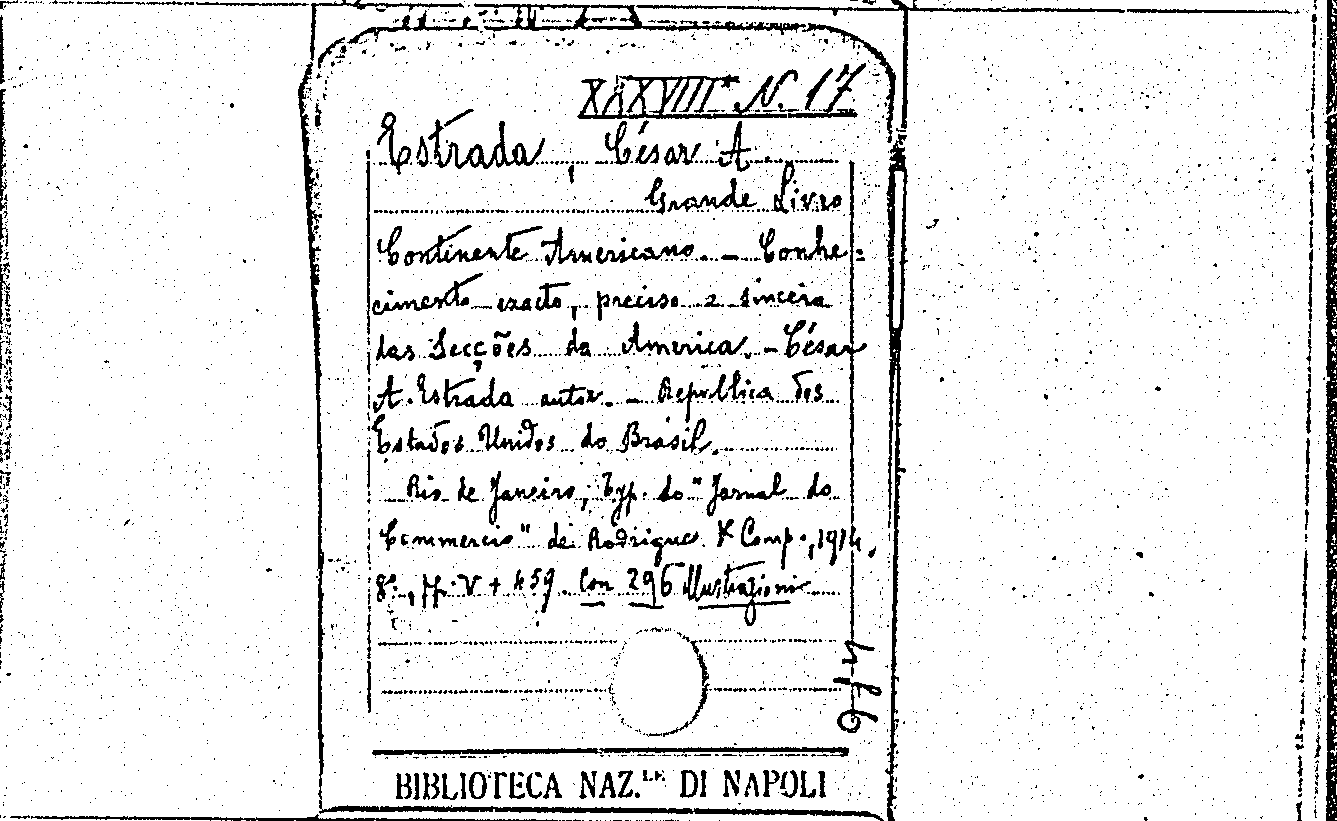 XXXVIII* N. 17
Estrada, César A.
Grande Livro
Continente Americano. - Conhe=
cimento exacto, preciso e sincera
das Secções da America. - César
A. Estrada autor. - Republica dos
Estados Unidos do Brasil.
Rio de Janeiro, Typ. do "Jornal do
Commercio" de Rodrigues & Comp., 1914.
8°., pp. V + 459. Con 296 illustrazioni
BIBLIOTECA NAZ.LE DI NAPOLI